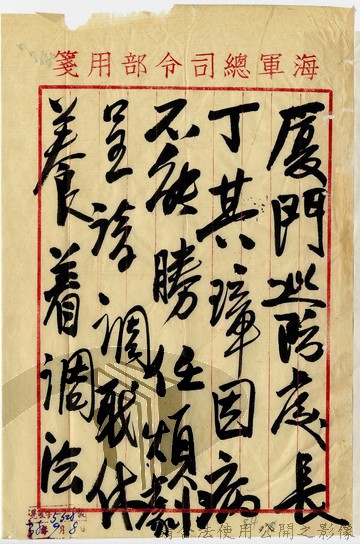 海軍總司令部用箋
廈門巡防處長
丁其璋因病
不能勝任煩劇
呈請調職休
養着調法
請合法使用公開之影像